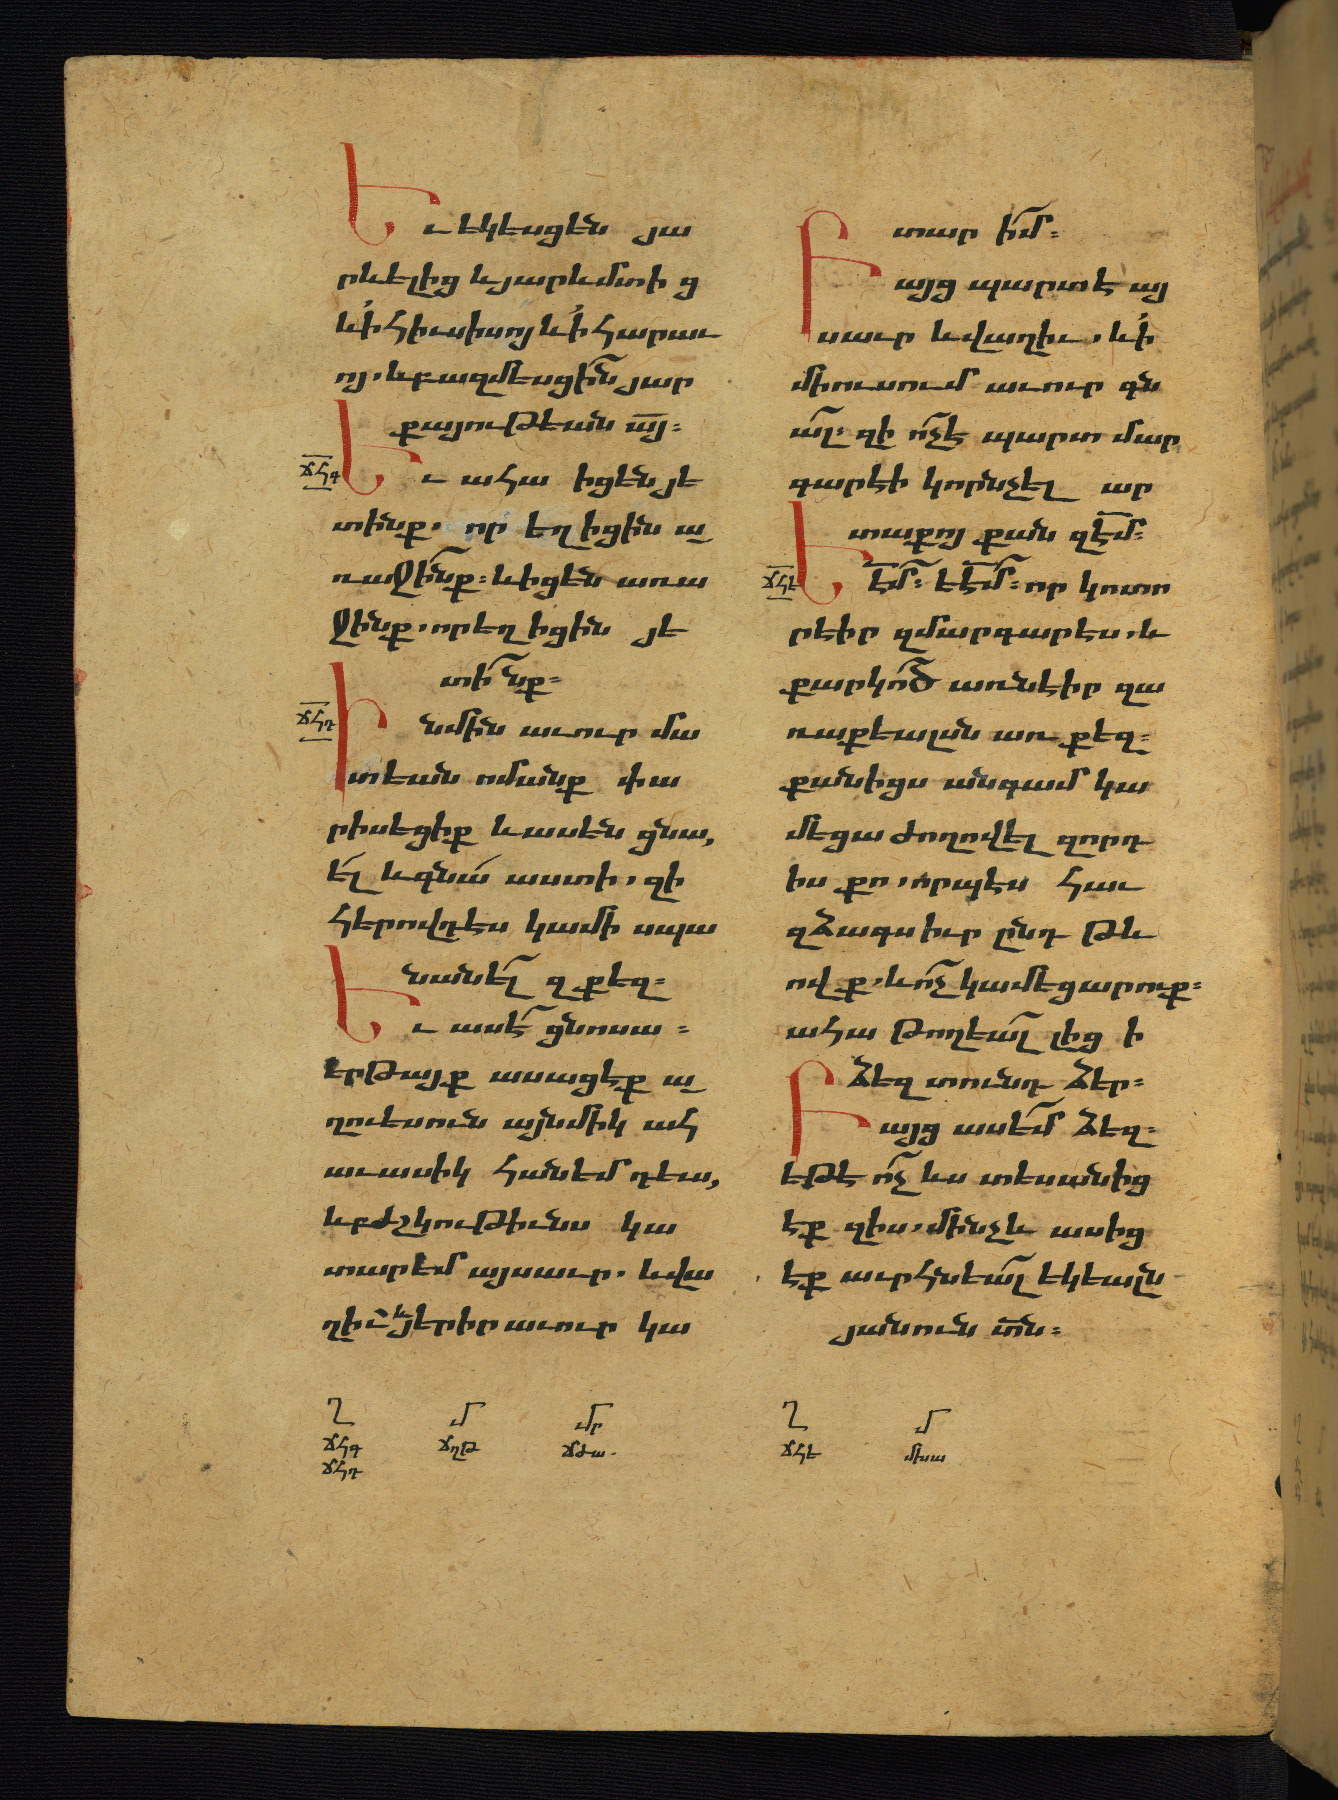 Եւ եկեսցեն յա
րևելից և յարևմտի ց
և ՛ի հիւսիսոյ և ՛ի հարաւ
ոյ, և բազմեսցի՜ն յար
քայութեան ա՟յ։
ՃՀԳ
Եւ ահա իցեն յե
տինք, որ եղիցին ա
ռաջի՜նք։ և իցեն առա
ջինք, որ եղիցին յե
տի՜նք։
ՃՀԴ
Ի նմին աւուր մա
տեան ոմանք փա
րիսեցիք և ասեն ցնա,
ե՛լ և գնա՛ աստի, զի
հերովդէս կամի սպա
նանե՜լ զքեզ։
Եւ ասէ՜ ցնոսա։
երթայք ասացէք ա
ղուեսուն այնմիկ ահ
աւասիկ հանեմ դեւս,
և բժշկութիւնս կա
տարեմ այսաւր, և վա
ղիւ և յերիր աւուր կա
Ղ
ՃՀԳ
ՃՀԴ
Մ
ՃՂԹ
Մր
ՃԺԱ.
տար ի՜մ։
Բայց պարտ է այ
սաւր և վաղիւ, և ՛ի
միուսում աւուր գն
ա՜լ։ զի ո՜չ է պարտ մար
գարէի կորնչել ար
տաքոյ քան զէ՟մ։
ՃՀԵ
Ե՟մ՜։ ԵԵ՟մ՜։ որ կոտո
րէիր զմարգարէս, և
քարկո՜ծ առնէիր զա
ռաքեալսն առ քեզ։
քանիցս անգամ կա
մեցա ժողովել զորդ
իս քո, որպէս հաւ
զձագս իւր ընդ թև
ովք, և ո՜չ կամեցարուք։
ահա թողեա՜լ լիցի
ձեզ տունդ ձեր։
Բայց ասե՜մ ձեզ։
եթէ ո՜չ ևս տեսանից
էք զիս, մինչև ասից
էք աւրհնեա՜լ եկեալն
յանուն տ՟ն։
Ղ
ՃՀԵ
Մ
ՄԽԱ